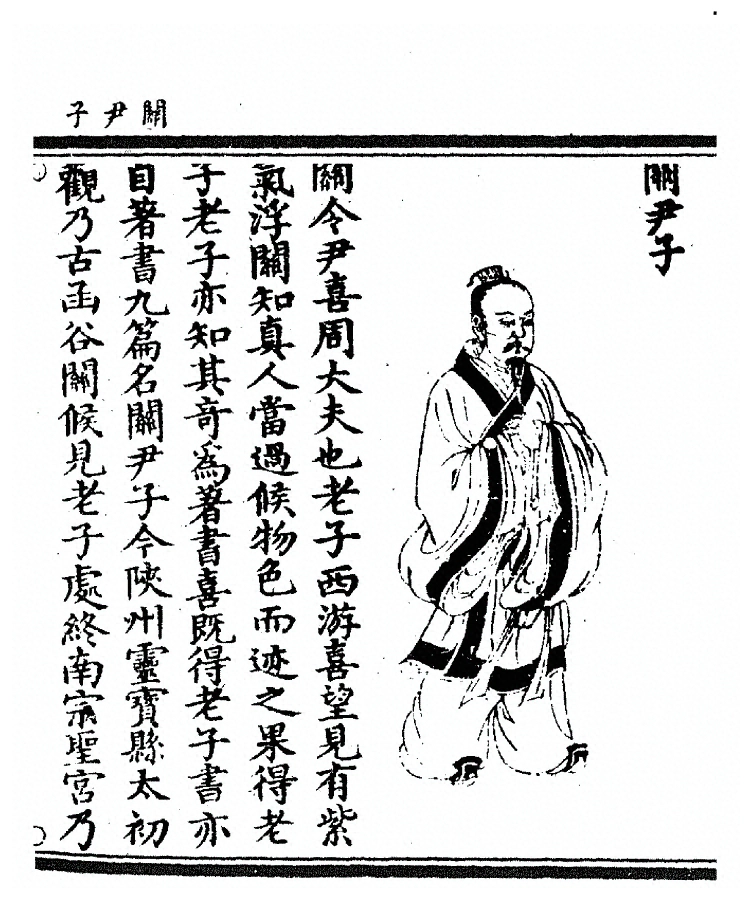 關尹子
關尹子
關令尹喜周大夫也老子西游喜望見有紫
氣浮關知真人當過候物色而迹之果得老
子老子亦知其竒為著書喜既得老子書亦
自著書九篇名關尹子今陜州靈寶縣太初
觀乃古函谷關候見老子處終南宗聖宮乃